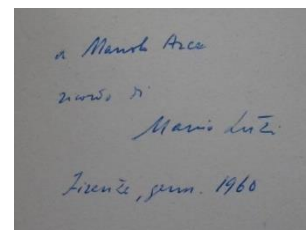 a Manolo Arce
ricordo di
Mario Luzi
Firenze, genn. 1960